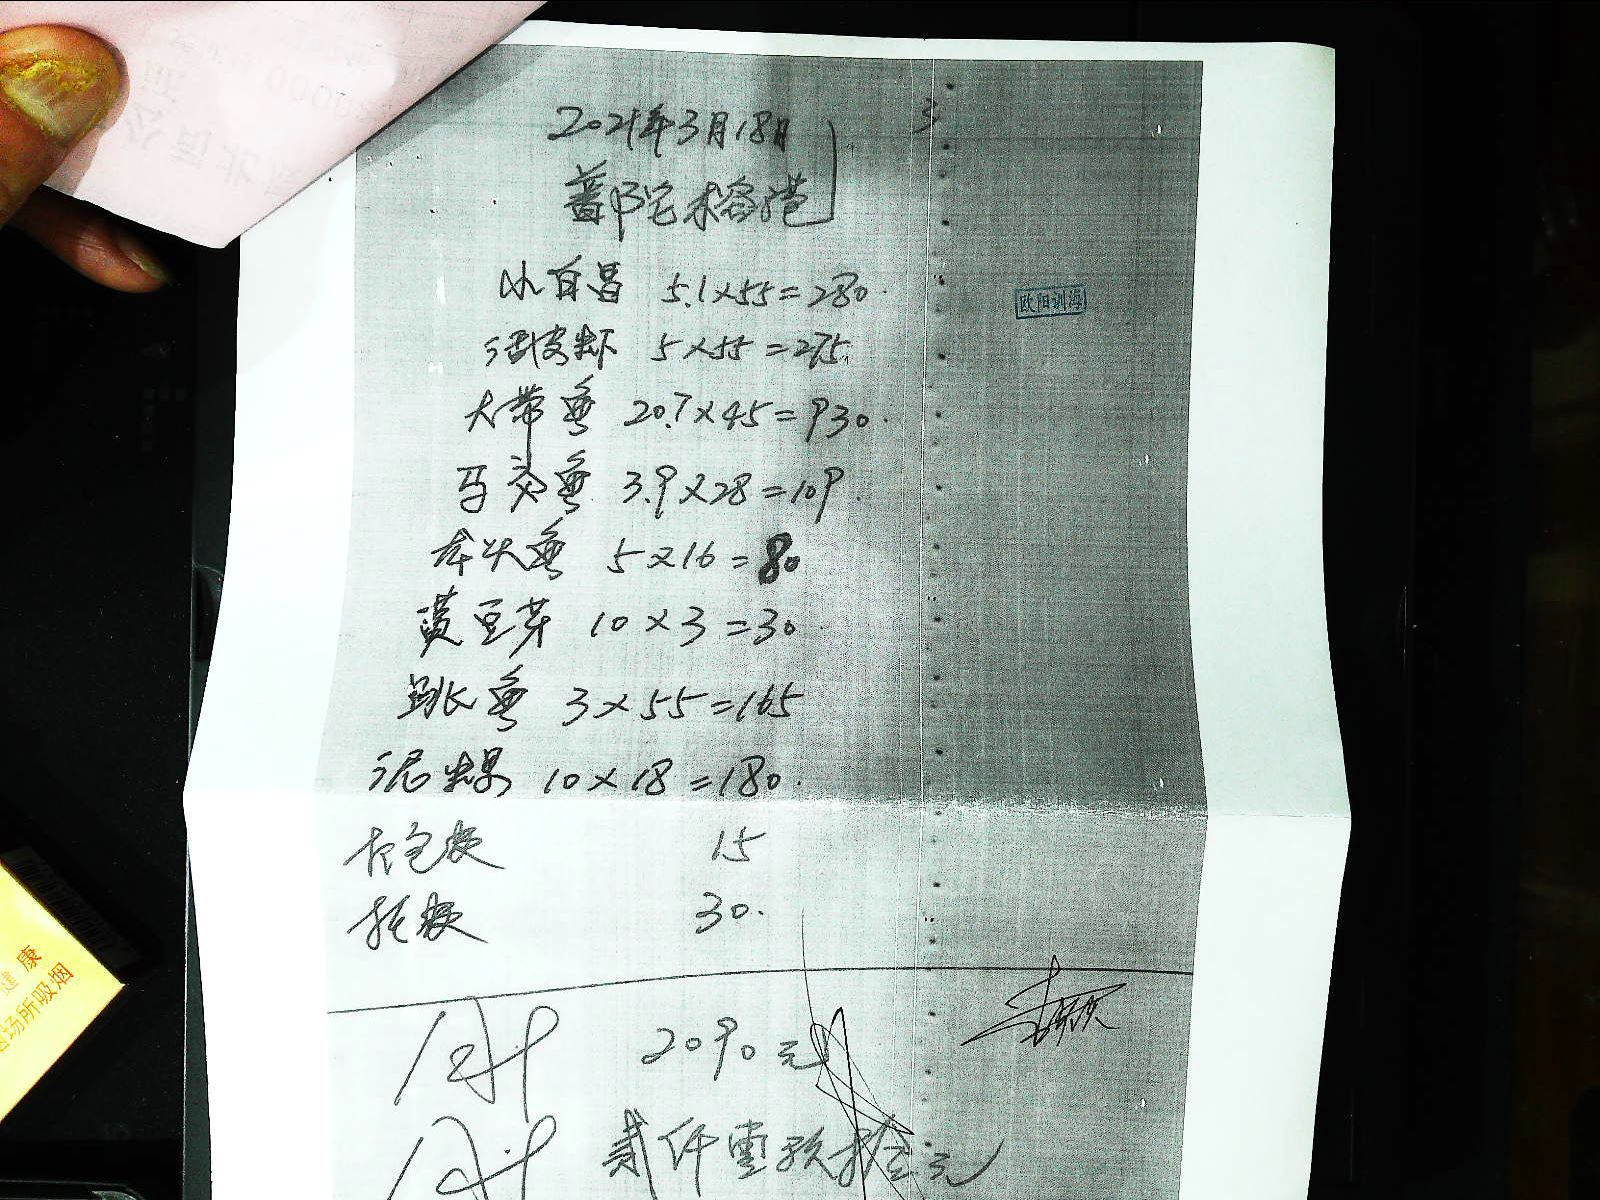 2021年3月18日
3
小白昌 5.1×55=280.
欧阳训海
活皮虾 5×55=275.
大带鱼 20.7×45=930.
马交鱼 3.9×28=109.
5×16=80
黄豆芽 10×3=30.
跳鱼 3×55=165
泥螺 10×18=180.
打包费 15
托费 30.
付 2090元
付 贰仟零玖拾元
健康
场所吸烟